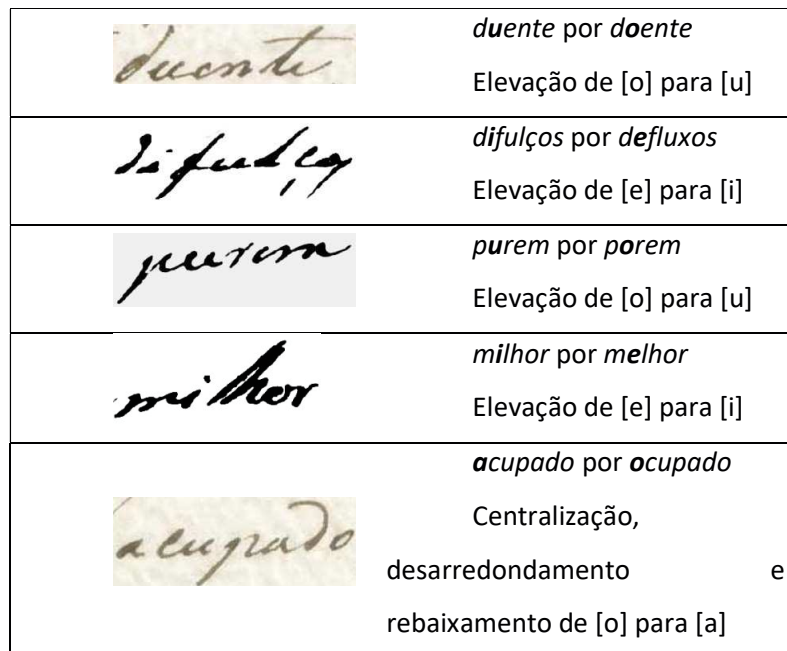 duente
duente por doente
Elevação de [o] para [u]
difulços
difulços por defluxos
Elevação de [e] para [i]
purem
purem por porem
Elevação de [o] para [u]
milhor
milhor por melhor
Elevação de [e] para [i]
acupado
acupado por ocupado
Centralização,
desarredondamento e
rebaixamento de [o] para [a]